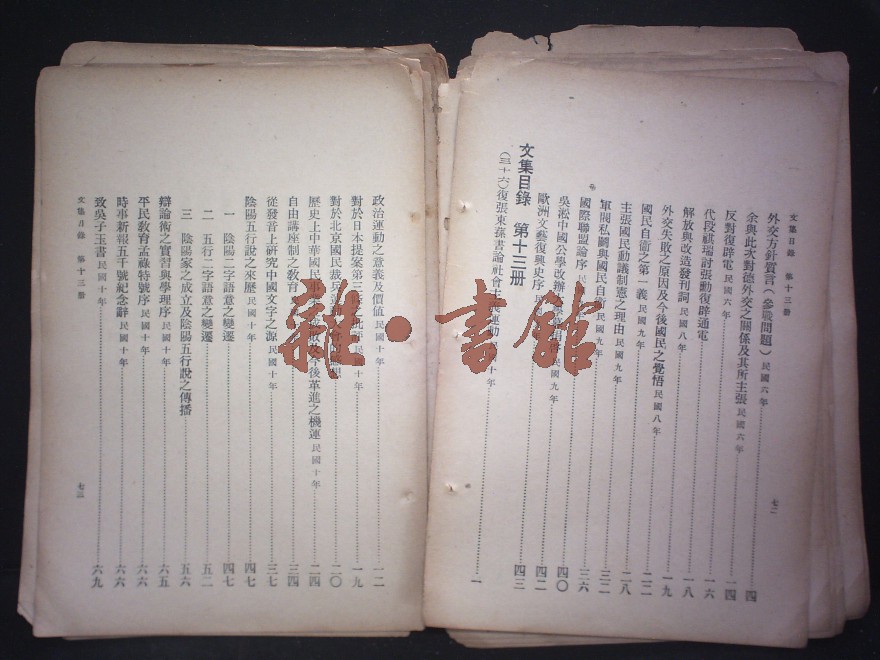 文集目錄 第十二册
七二
外交方針質言(參戰問題)民國六年 四
余與此次對德外交之關係及其所主張 民國六年
反對復辟電 民國六年 一四
代段祺瑞討張勳復辟通電 一六
解放與改造發刊詞 民國八年 一八
外交失敗之原因及今後國民之覺悟 民國八年 一九
國民自衞之第一義 民國九年 二二
主張國民動議制憲之理由 民國九年 二八
軍閥私鬭與國民自衞 民國九年 三二
國際聯盟論序 民國 三六
吳淞中國公學改辦 民國九年 四〇
歐洲文藝復興史序 民國 四二
四三
文集目錄 第十三册
(三十六)復張東蓀書論社會主義運動 民國十年 一
政治運動之意義及價值 民國十年 一二
對於日本提案第三 民國十年 一九
對於北京國民裁兵 二〇
歷史上中華國民事業 後革進之機運 民國十年 二四
自由講座制之教育 三四
從發音上研究中國文字之源 民國十年 三七
陰陽五行說之來歷 民國十年 四七
一 陰陽二字語意之變遷 四七
二 五行二字語意之變遷 五二
三 陰陽家之成立及陰陽五行說之傳播 五六
辯論術之實習與學理序 民國十年 六五
平民教育孟祿特號序 民國十年 六六
時事新報五千號紀念辭 民國十年 六六
致吳子玉書 民國十年 六九
文集目錄 第十三册
七三
雜·書館